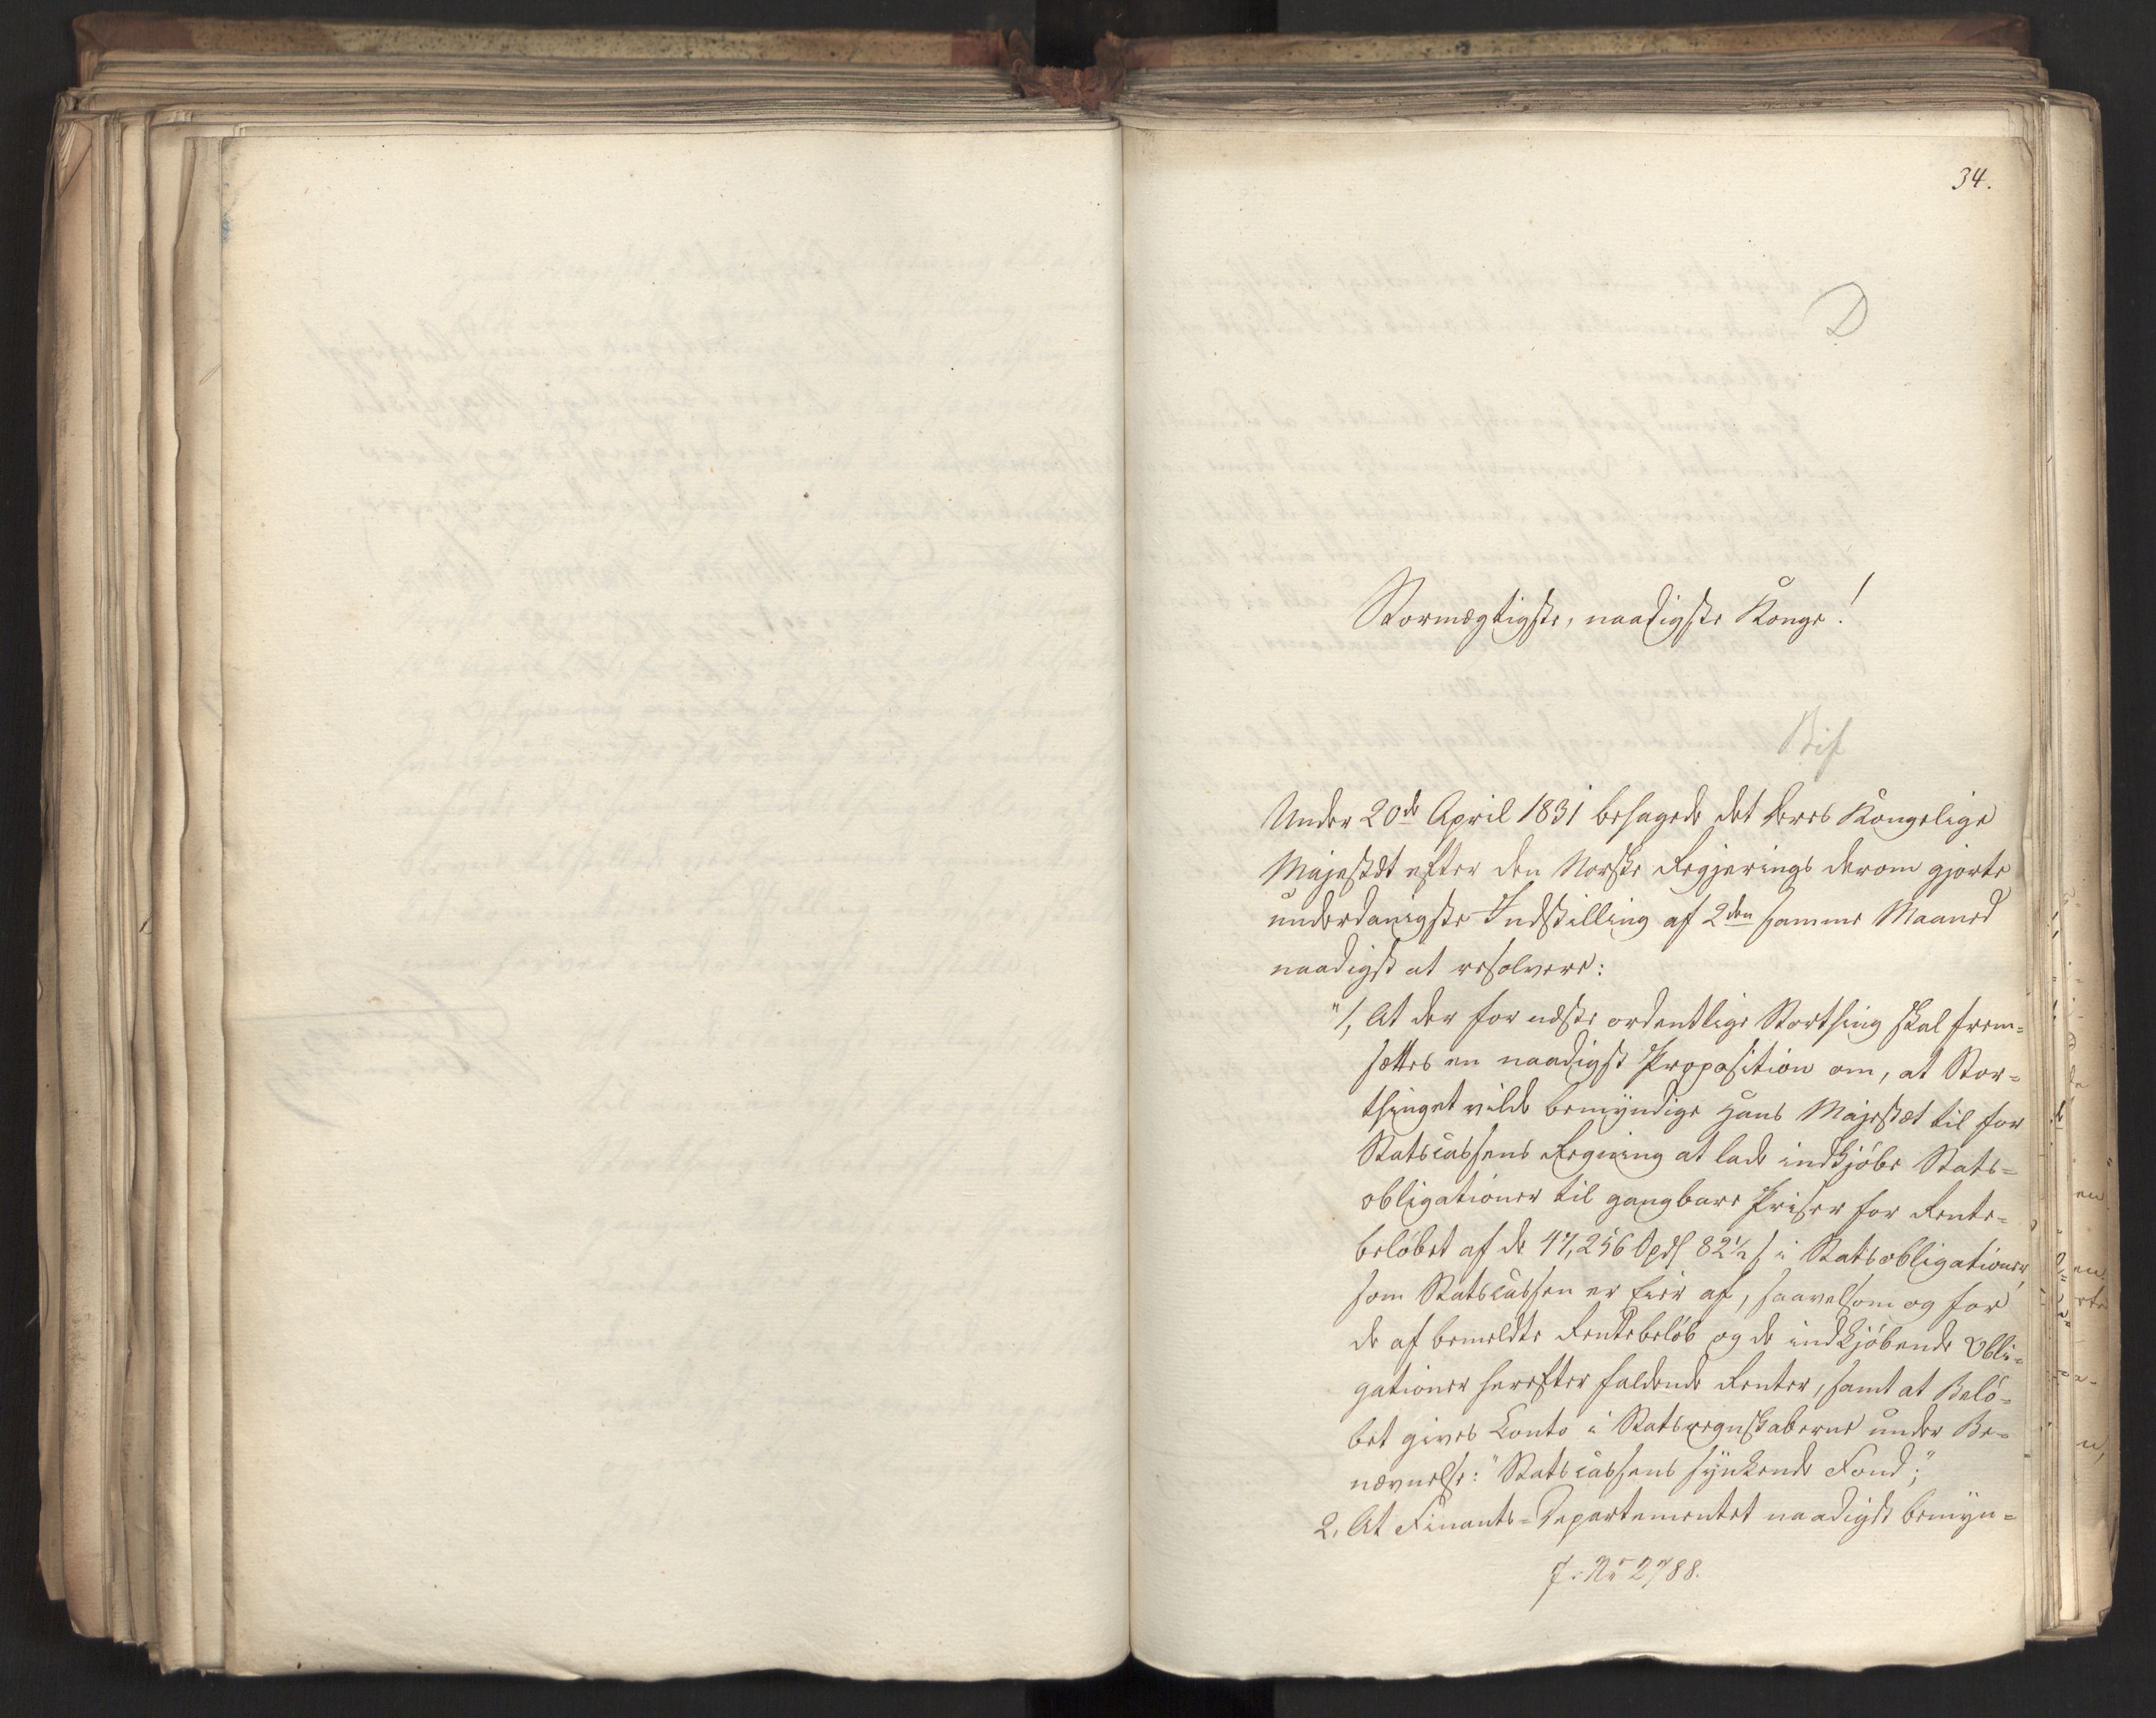 34.
D
Stormægtigste, naadigste Konge!
Bif
Under 20de April 1831 behagede det Deres Kongelige
Majestæt efter den Norske Regjerings derom gjorte
underdanigste Indstilling af 2den samme Maaned
naadigst at resolvere:
"1, At der for næste ordentlige Storthing skal frem-
sættes en naadigst Proposition om, at Stor-
thinget vilde bemyndige Hans Majestæt til for
Statscassens Regning at lade indkjøbe Stats-
obligationer til gangbare Priser for Rente-
beløbet af de 47,256 Spd 82½ s i Statsobligationer,
som Statscassen er Eier af, saavelsom og for
de af bemeldte Rentebeløb og de indkjøbende Obli-
gationer herefter faldende Renter, samt at Belø-
bet gives Conto i Statsregnskaberne under Be-
nævnelse: "Statscassens synkende Fond;"
2, At Finants-Departementet naadigst bemyn-
J. No 2788.